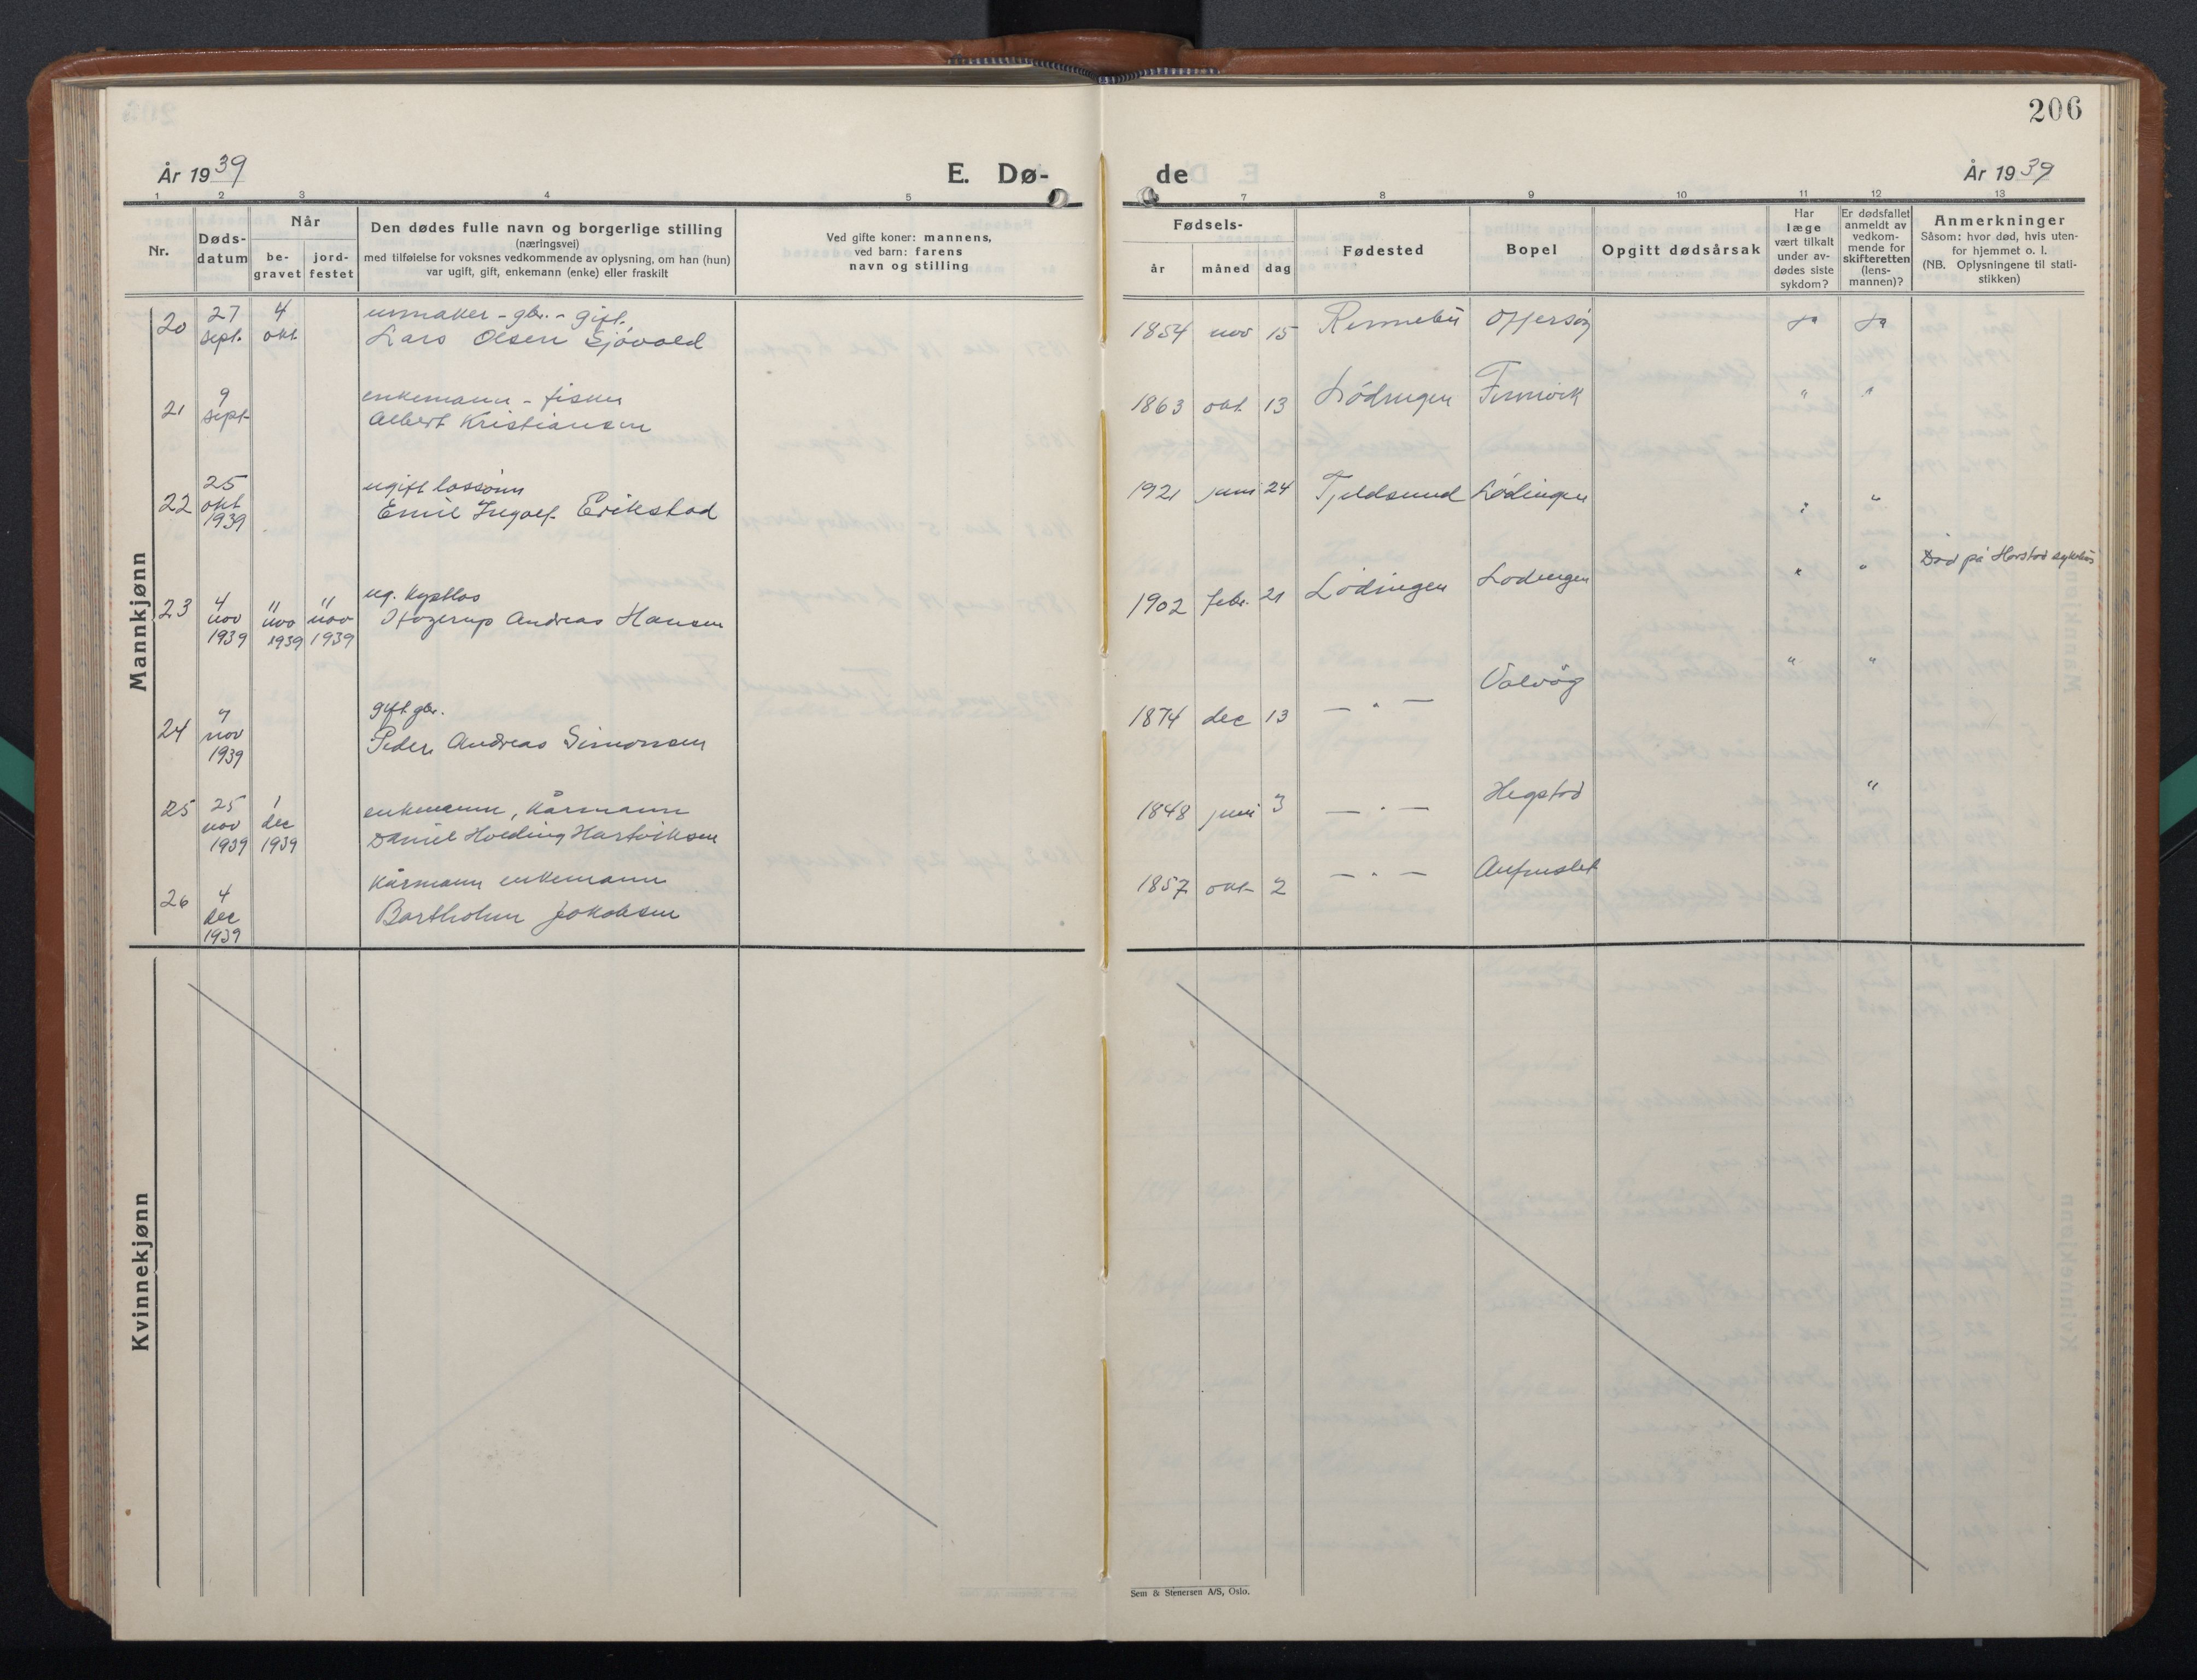 206
År 1939
E. Dø-
de
År 1939
1 2 3 4 5 7 8 9 10 11 12 13
Nr.
Døds-
datum
Når
be-
gravet
jord-
festet
Den dødes fulle navn og borgerlige stilling
(næringsvei)
med tilføielse for voksnes vedkommende av oplysning, om han (hun)
var ugift, gift, enkemann (enke) eller fraskilt
Ved gifte koner: mannens,
ved barn: farens
navn og stilling
Fødsels-
år måned dag
Fødested
Bopel
Opgitt dødsårsak
Har
læge
vært tilkalt
under av-
dødes siste
sykdom?
Er dødsfallet
anmeldt av
vedkom-
mende for
skifteretten
(lens-
mannen)?
Anmerkninger
Såsom: hvor død, hvis uten-
for hjemmet o. l.
(NB. Oplysningene til stati-
stikken)
Mannkjønn
20 27 sept. 4 okt. urmaker - gbr. - gift.
Lars Olsen Sjøvold
1854 nov 15 Rennebu Offersøy ja ja
21 9 sept enkemann - fisker
Albert Kristiansen
1863 okt. 13 Lødingen Finnvik " "
22 25 okt 1939 ugift lossønn
Emil Ingolf Erikstad
1921 juni 24 Tjeldsund Lødingen " "
23 4 nov 1939 11 nov 1939 11 nov 1939 ug.
Hagerup Andreas Hansen
1902 febr. 21 Lødingen Lødingen " " Død på Harstad sykehus
24 7 nov 1939 gift gbr.
Peder Andreas Simonsen
1874 dec 13 — " — Valvåg " "
25 25 nov 1939 1 dec 1939 enkemann, kårmann
Daniel Holding Hartviksen
1848 juni 3 — " — Hegstad "
26 4 dec 1939 kårmann enkemann
Bartholm Jakobsen
1857 okt 2 — " —
Kvinnekjønn
Sem & Stenersen A/S, Oslo.